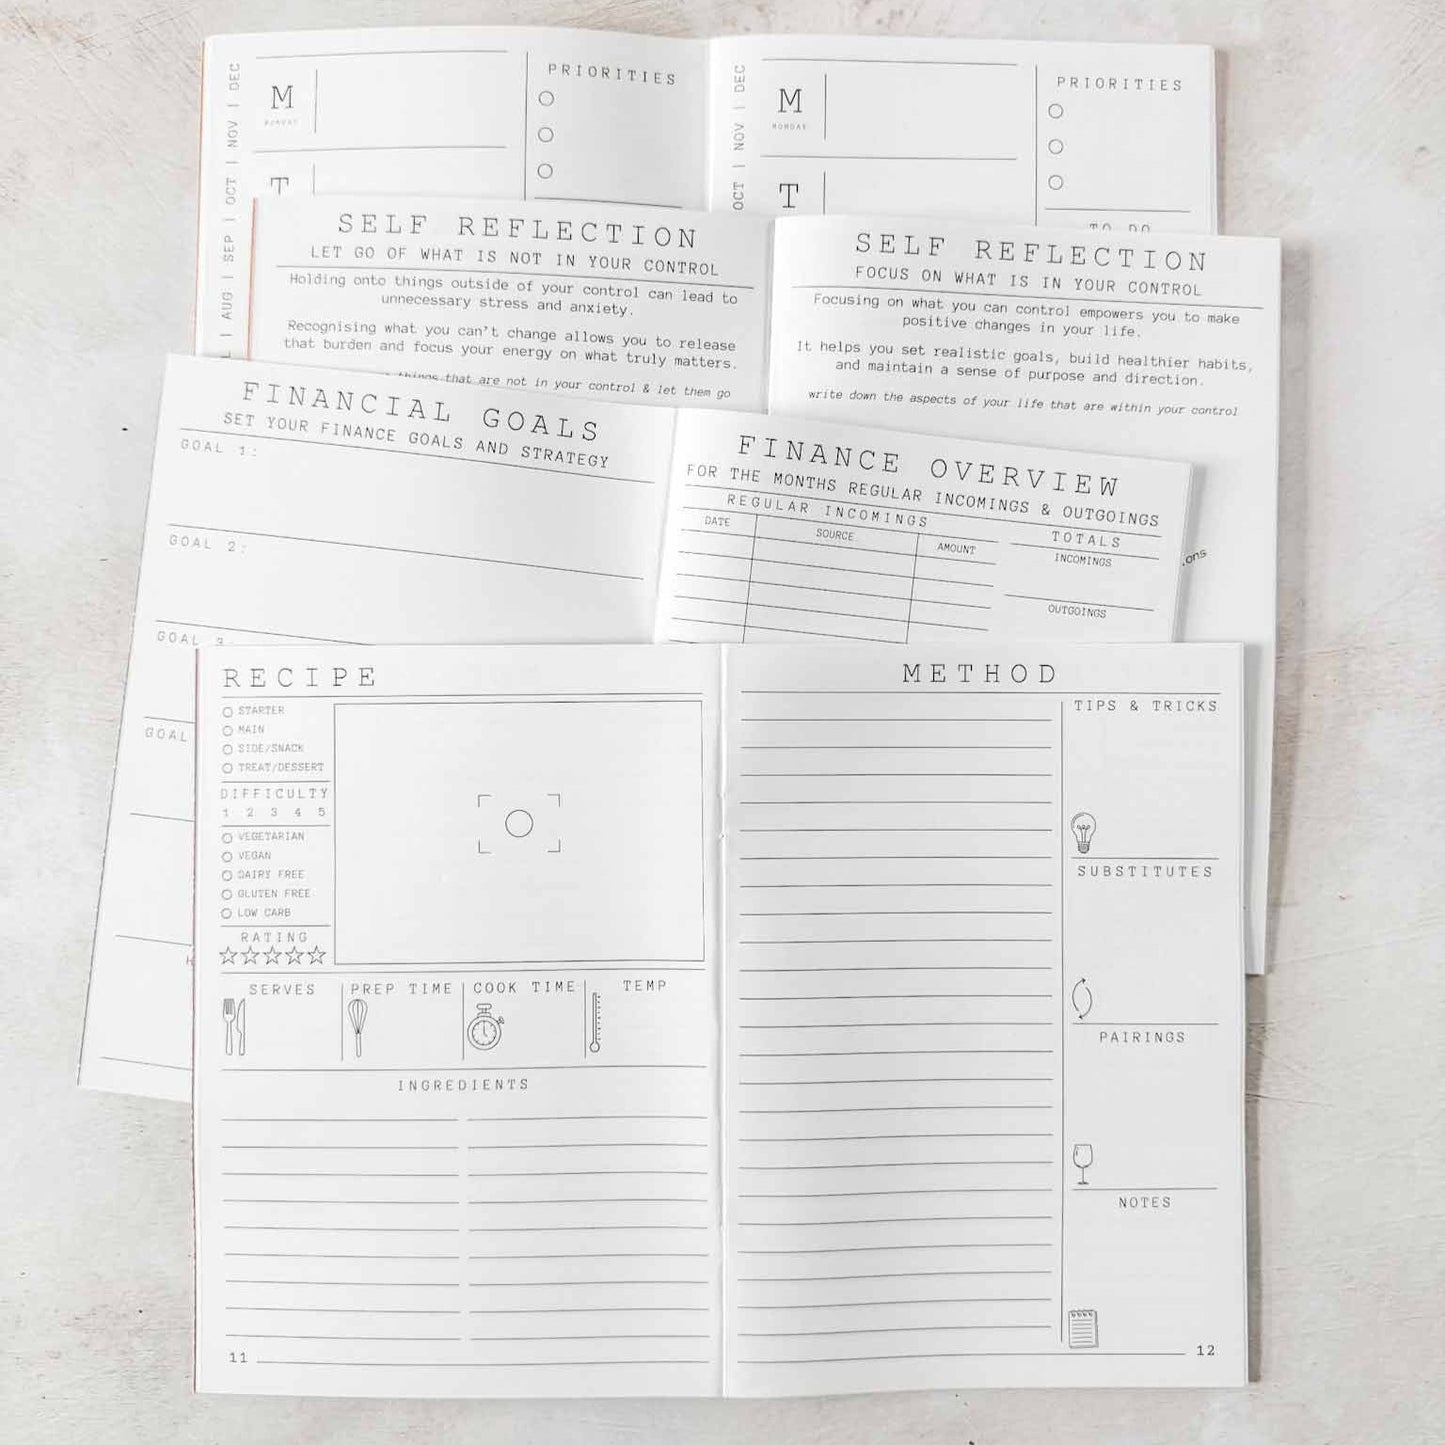 AUG | SEP | OCT | NOV | DEC
M
MONDAY
T
PRIORITIES
OCT | NOV | DEC
M
MONDAY
T
PRIORITIES
TO DO
SELF REFLECTION
LET GO OF WHAT IS NOT IN YOUR CONTROL
Holding onto things outside of your control can lead to
unnecessary stress and anxiety.
Recognising what you can't change allows you to release
that burden and focus your energy on what truly matters.
things that are not in your control & let them go
SELF REFLECTION
FOCUS ON WHAT IS IN YOUR CONTROL
Focusing on what you can control empowers you to make
positive changes in your life.
It helps you set realistic goals, build healthier habits,
and maintain a sense of purpose and direction.
write down the aspects of your life that are within your control
FINANCIAL GOALS
SET YOUR FINANCE GOALS AND STRATEGY
GOAL 1:
GOAL 2:
GOAL 3:
GOAL
FINANCE OVERVIEW
FOR THE MONTHS REGULAR INCOMINGS & OUTGOINGS
REGULAR INCOMINGS
DATE SOURCE AMOUNT
TOTALS
INCOMINGS
OUTGOINGS
RECIPE
STARTER
MAIN
SIDE/SNACK
TREAT/DESSERT
DIFFICULTY
1 2 3 4 5
VEGETARIAN
VEGAN
DAIRY FREE
GLUTEN FREE
LOW CARB
RATING
SERVES PREP TIME COOK TIME TEMP
INGREDIENTS
11
METHOD
TIPS & TRICKS
SUBSTITUTES
PAIRINGS
NOTES
12